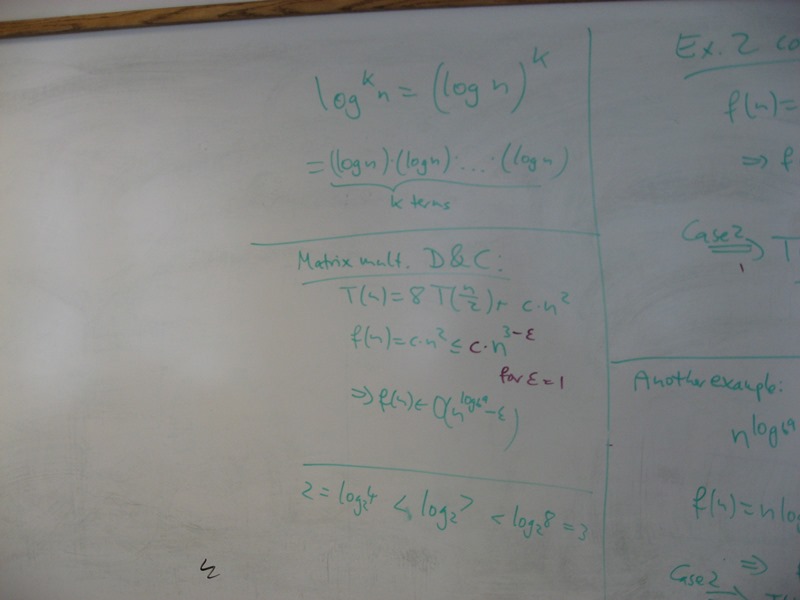 log^k n = (log n)^k
= (log n)·(log n)· ... (log n)
k terms
Matrix mult. D&C:
T(n) = 8 T(n/2) + c·n²
f(n) = c·n² ≤ c·n^(3-ε)
for ε = 1
⇒ f(n) ∈ O(n^(log_b a - ε))
2 = log₂4 < log₂7 < log₂8 = 3
Ex. 2 co
f(n) =
⇒ f
Case 2 ⇒ T
Another example:
n^(log_b a)
f(n) = n log
Case 2 ⇒